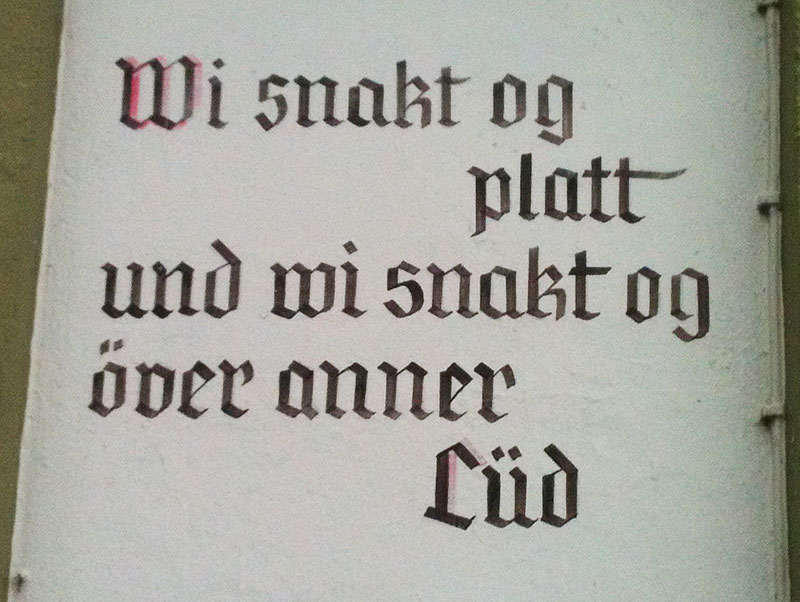 Wi snakt og
platt
und wi snakt og
över anner
Lüd